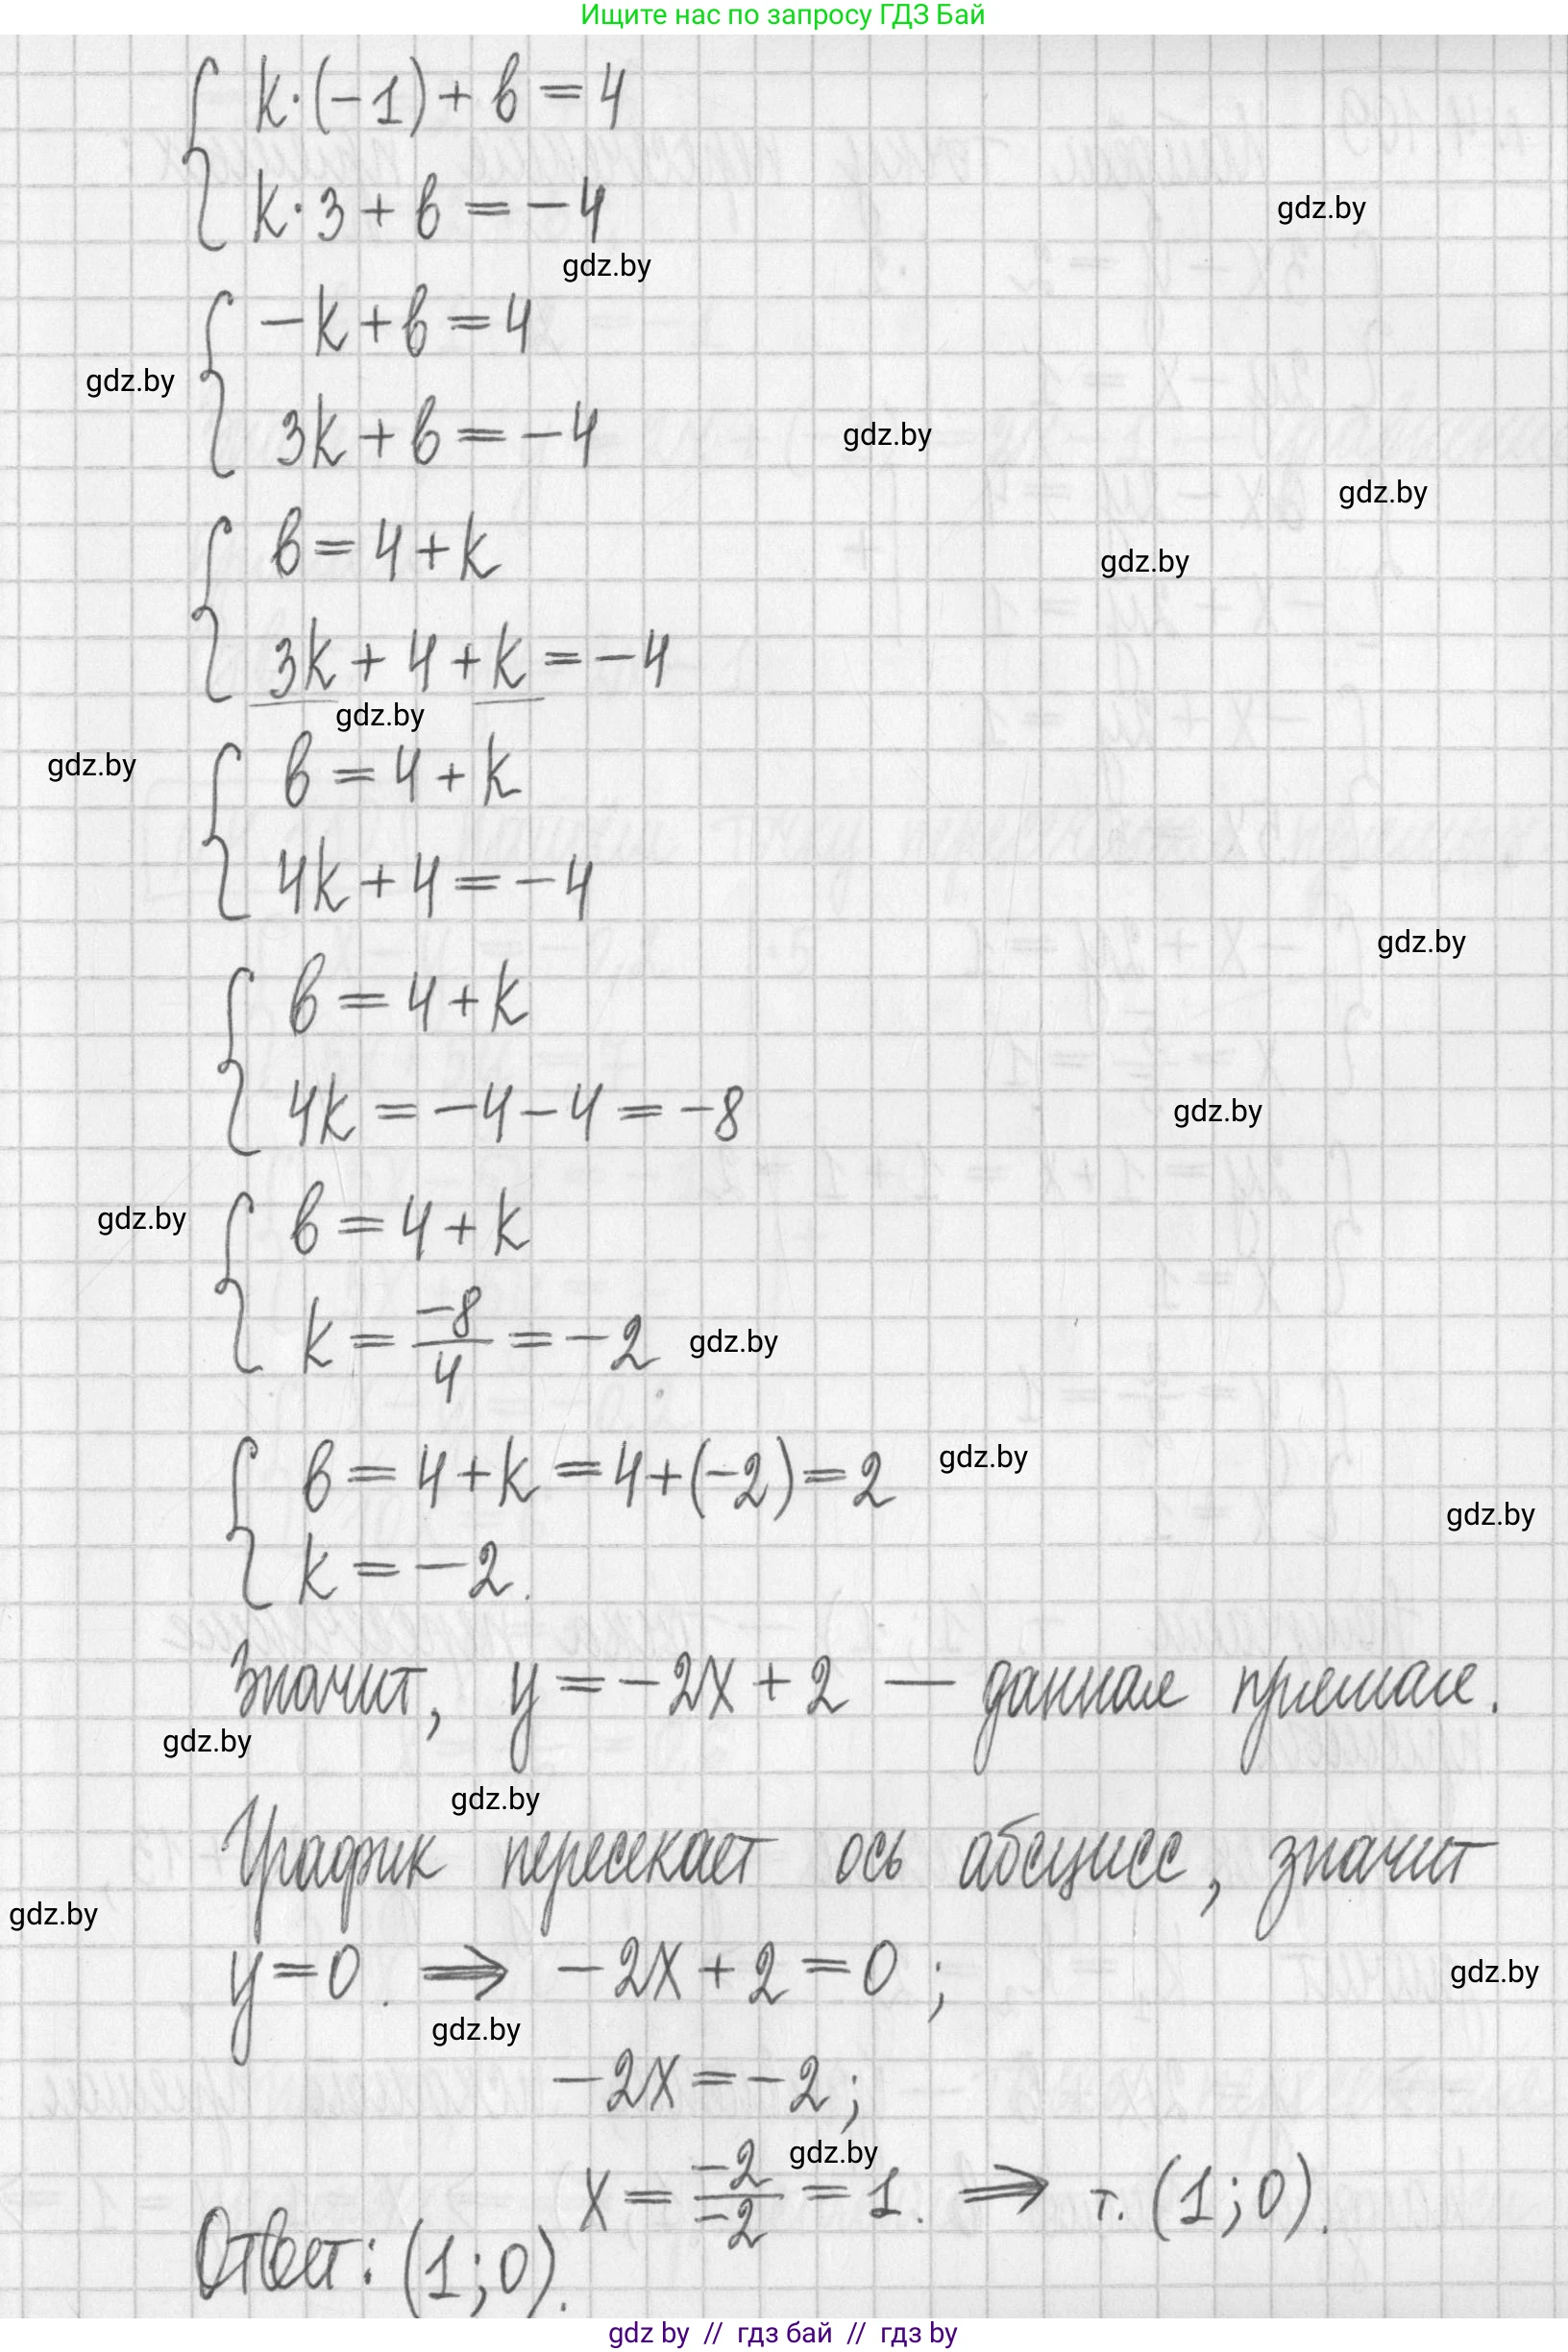 Ищите нас по запросу ГДЗ Бай
k·(-1)+в=4
k·3+в=-4
gdz.by
gdz.by
-k+в=4
gdz.by
3k+в=-4
gdz.by
gdz.by
в=4+k
gdz.by
3k+4+k=-4
gdz.by
gdz.by
в=4+k
4k+4=-4
gdz.by
в=4+k
4k=-4-4=-8
gdz.by
gdz.by
в=4+k
k=-8/4=-2
gdz.by
в=4+k=4+(-2)=2
gdz.by
gdz.by
k=-2.
Значит, y=-2x+2 — данная прямая.
gdz.by
gdz.by
График пересекает ось абсцисс, значит
gdz.by
y=0. ⇒ -2x+2=0;
gdz.by
gdz.by
-2x=-2;
gdz.by
x=-2/-2=1. ⇒ т. (1;0).
Ответ: (1;0).
gdz by // гдз бай // гдз by